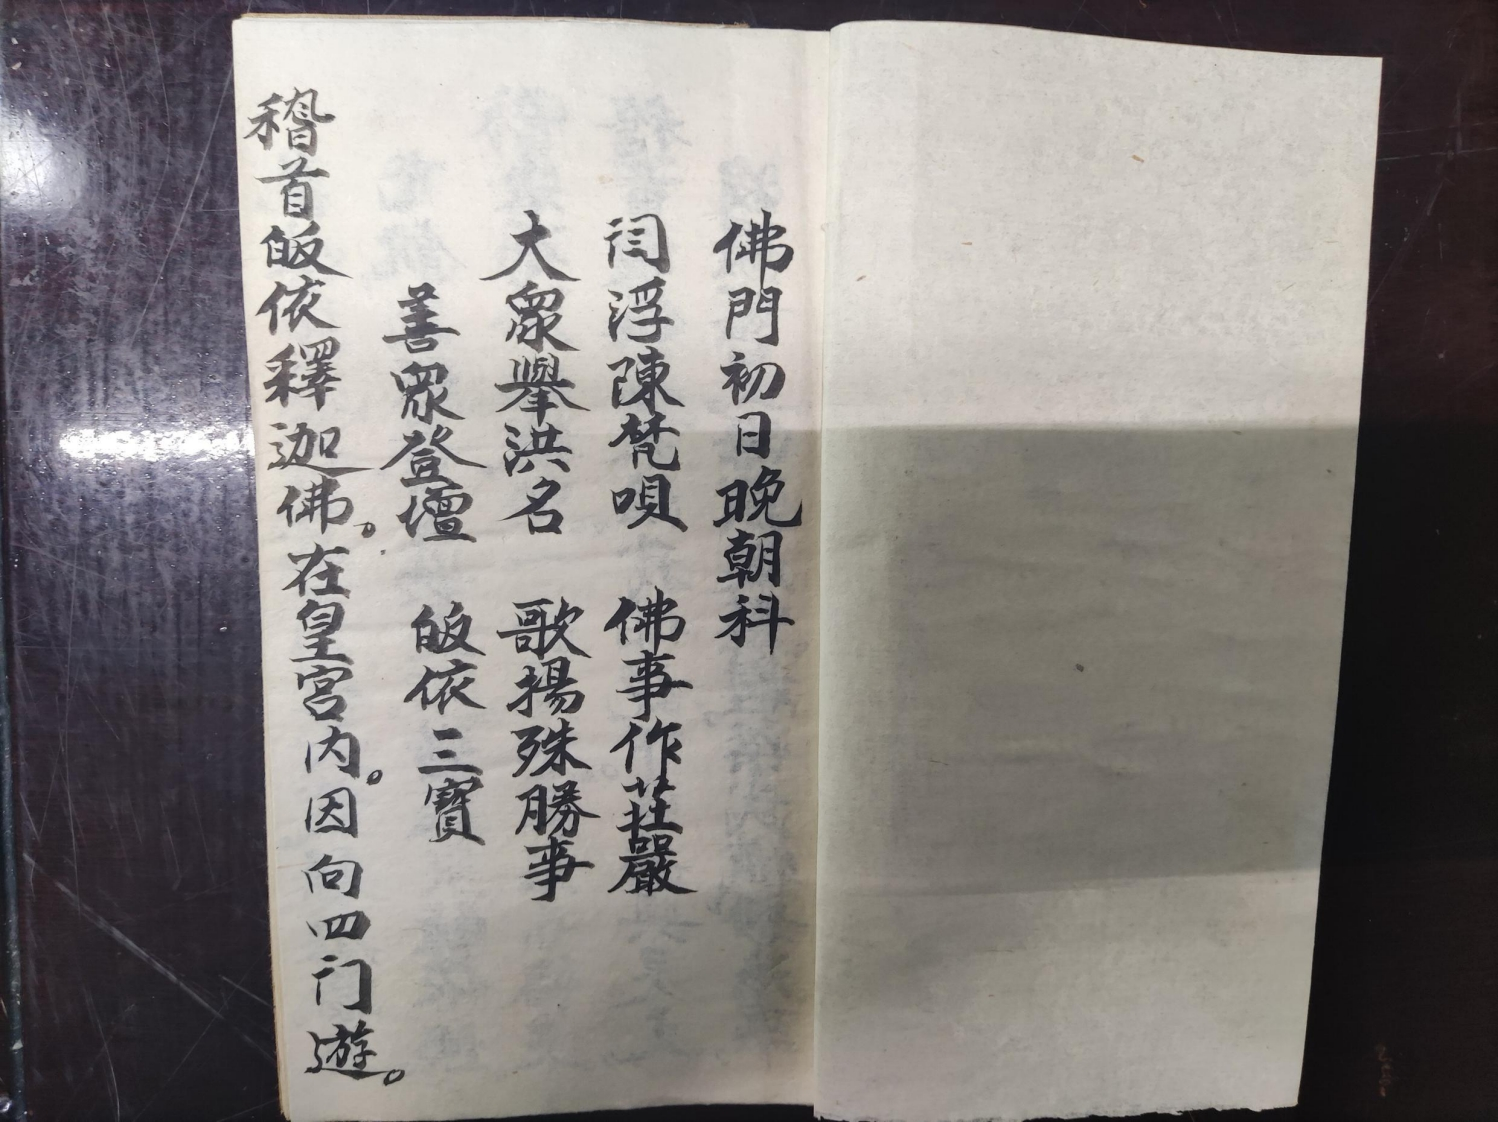 佛門初日晚朝科
闫浮陳梵唄　佛事作莊嚴
大眾舉洪名　歌揚殊勝事
善眾登壇　皈依三寶
稽首皈依釋迦佛。在皇宮内。因向四门遊。